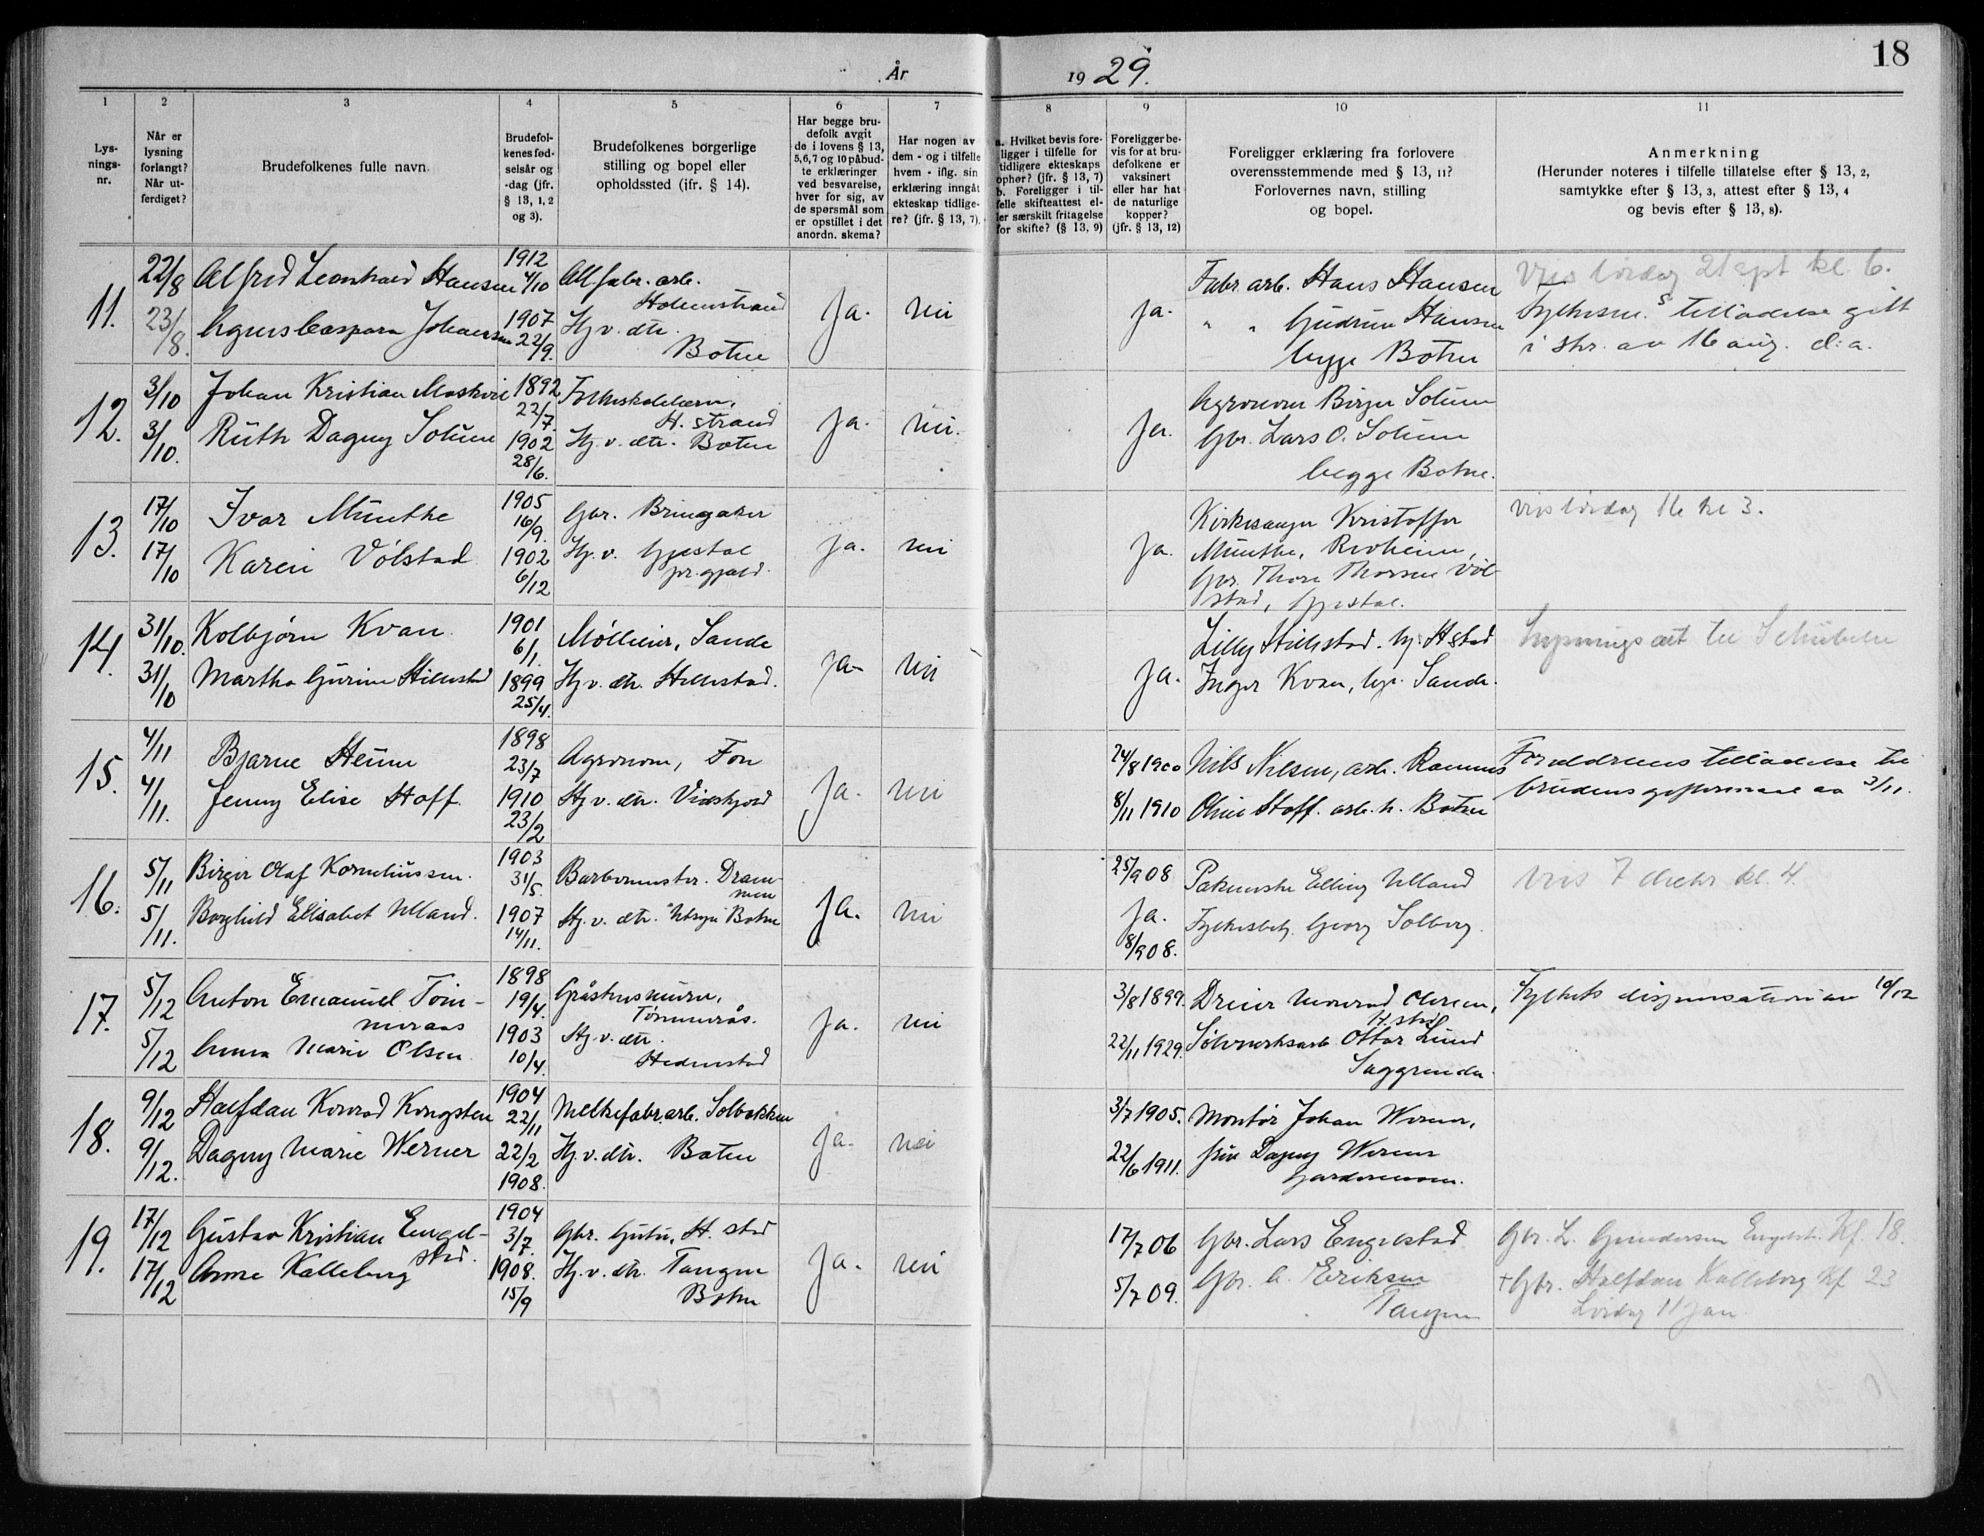 År 1929.
18
1 2 3 4 5 6 7 8 9 10 11
Lys-
nings-
nr.
Når er
lysning
forlangt?
Når ut-
ferdiget?
Brudefolkenes fulle navn.
Brudefol-
kenes fød-
selsår og
-dag (jfr.
§ 13, 1, 2
og 3).
Brudefolkenes borgerlige
stilling og bopel eller
opholdssted (jfr. § 14).
Har begge bru-
defolk avgit
de i lovens § 13,
5,6,7 og 10 påbud-
te erklæringer
ved besvarelse,
hver for sig, av
de spørsmål som
er opstillet i det
anordn. skema?
Har nogen av
dem - og i tilfelle
hvem - iflg. sin
erklæring inngåt
ekteskap tidlige-
re? (jfr. § 13, 7).
a. Hvilket bevis fore-
ligger i tilfelle for
tidligere ekteskaps
ophør? (jfr. § 13, 7)
b. Foreligger i til-
felle skifteattest el-
ler særskilt fritagelse
for skifte? (§ 13, 9)
Foreligger be-
vis for at bru-
defolkene er
vaksinert
eller har hat
de naturlige
kopper?
(jfr. § 13, 12)
Foreligger erklæring fra forlovere
overensstemmende med § 13, 11?
Forlovernes navn, stilling
og bopel.
Anmerkning
(Herunder noteres i tilfelle tillatelse efter § 13, 2,
samtykke efter § 13, 3, attest efter § 13, 4
og bevis efter § 13, 8).
11.
22/8
23/8.
Alfred Leonhard Hansen
Agnes Caspara Johansen
1912
4/10
1907
22/9.
All. fabr. arb.
Holmestrand
Hj. v. dtr.
Botne
Ja.
nei
Ja.
Fabr. arb. Hans Hansen
" " Gudrun Hansen
begge Botne
Vies lørdag 21 sept kl. 6.
Fylkesm.s tilladelse gitt
i skr. av 16 aug. d. a.
12.
3/10
3/10.
Johan Kristian Moskvil
Ruth Dagny Solum
1892
22/7.
1902
28/6.
Folkeskolelærer,
H. strand
Hj. v. dtr. Botne
Ja.
nei.
Ja.
Agronom Birger Solum
Gbr. Lars O. Solum
begge Botne.
13.
17/10
17/10
Ivar Munthe
Karen Vølstad
1905
16/9.
1902
6/12
Gbr. Bringaker
Hj. v. Gjestal
pr.gjeld.
Ja.
nei
Ja.
Kirkesanger Kristoffer
Munthe,
Gbr. Thore Thorsen Vøl-
stad, Gjestal.
Vies lørdag 16 kl 3.
14.
31/10.
31/10
Kolbjørn Kvan
Martha Gurine Hillestad
1901
6/1.
1899
25/4.
Mølleier, Sande
Hj. v. dtr. Hillestad.
Ja-
nei
Ja.
Lilly Hillestad. hj. H stad
Inger Kvan, Sande.
Lysningsatt til
15.
4/11
4/11.
Bjarne Heum
Jenny Elise Hoff.
1898
23/7
1910
23/2
Agronom, Fon
Hj. v. dtr. Vivestad
Ja.
nei
24/8 1900
8/11 1910
Nils Nilsen, arb. Ramnes
Oline Hoff. arb. h. Botne
Foreldrenes tilladelse til
brudens giftermaal av 3/11.
16.
5/11
5/11.
Birger Olaf Korneliussen.
Borghild Elisabet Ulland.
1903
31/5.
1907
14/11.
Barbermester. Dram-
men
Hj. v. dtr. Botne
Ja.
nei
25/9 08
Ja.
8/9 08.
Elling Ulland
Georg Solberg.
Vies 7 decbr kl. 4.
17.
5/12
5/12
Anton Emanuel Tom-
meraas
Anna Marie Olsen
1898
19/4.
1903
10/4.
Tommerås.
Hj. v. dtr.
Hedenstad
Ja.
nei
3/8 1899.
22/11 1929.
Dreier Olsen,
H. stad
Sølvverksarb. Ottar Lund
Saggrenda.
Fylkets dispensation av 10/12
18.
9/12
9/12.
Halfdan Konrad Kongsten
Dagny Marie Werner
1904
22/11
22/2
1908.
Melkefabr. arb. Solbakken
Hj. v. dtr. Botne
Ja.
nei
3/7 1905.
22/6 1911.
Montør Johan Werner,
fru Dagny Werner
Gardermoen.
19.
17/12
17/12
Gustav Kristian Engel-
stad.
Anne Kalleberg
1904
3/7.
1908.
15/9
Gbr. Gutu, H. stad
Hj. v. dtr. Tangen
Botne
Ja.
nei
17/7 06
5/7 09.
Gbr. Lars Engelstad.
Gbr. A. Eriksen
Tangen
Gbr. L. Gundersen Engelst. Kf. 18.
+ Gbr. Halfdan Kalleberg Kf 23
Lørdag 11 jan.